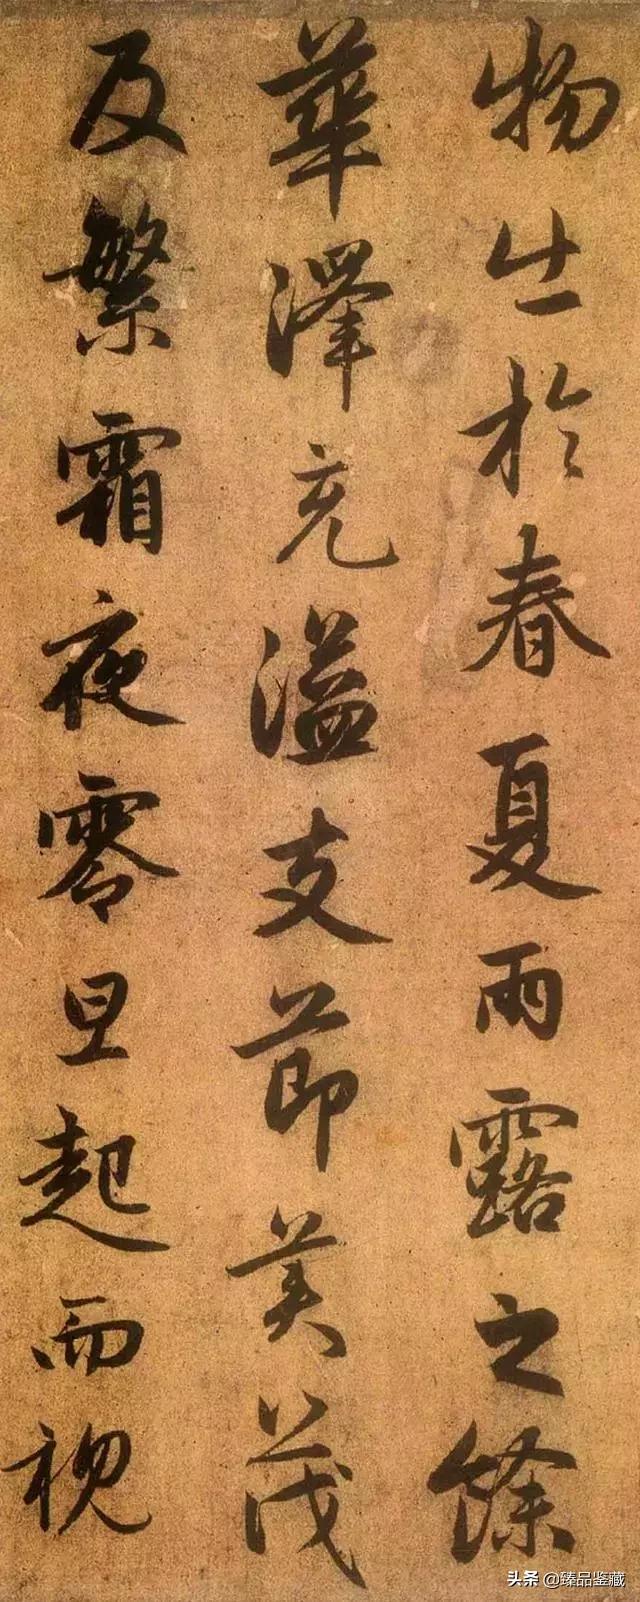 物生於春夏雨露之餘
華澤充溢支節美茂
及繁霜夜零旦起而視
头条 @臻品鉴藏